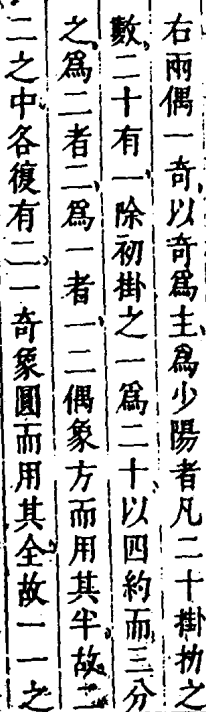 右兩偶一奇以奇爲主爲少陽者凡二十掛扐之
數二十有一除初掛之一爲二十以四約而三分
之爲二者二爲一者一二偶象方而用其半故二
二之中各復有二一奇象圓而用其全故一一之